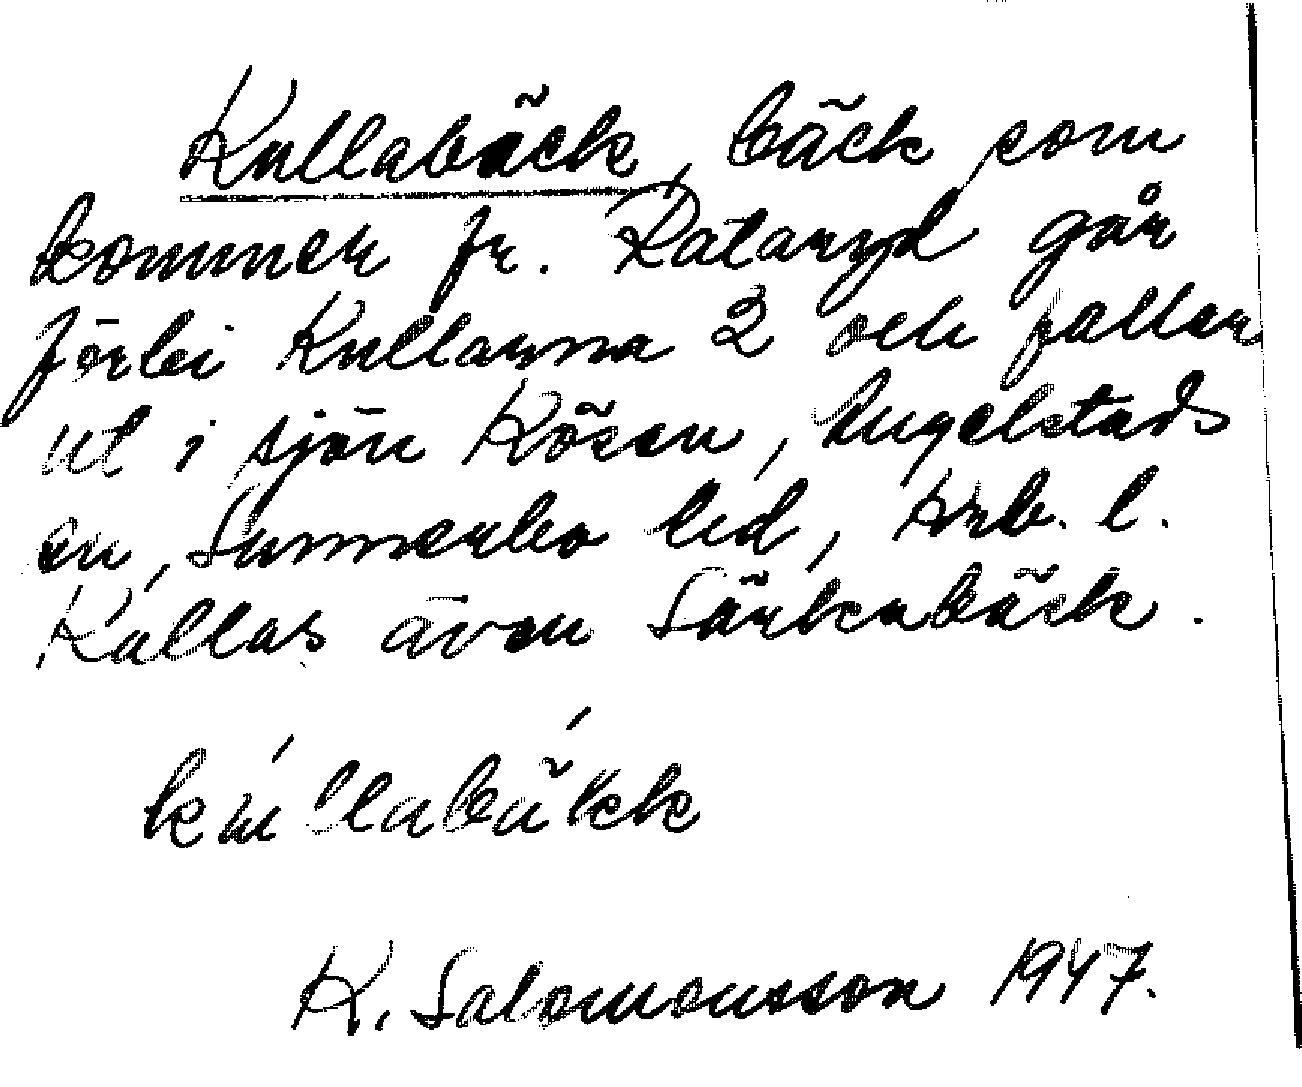 Kullabäck, bäck som
kommer fr. Rataryd går
förbi Kullarna 2 och faller
ut i sjön Kösen, Angelstads
sn, Sunnerbo hd, Krb. l.
Kallas även Särkabäck.
kullabäkk
K. Salomonsson 1947.